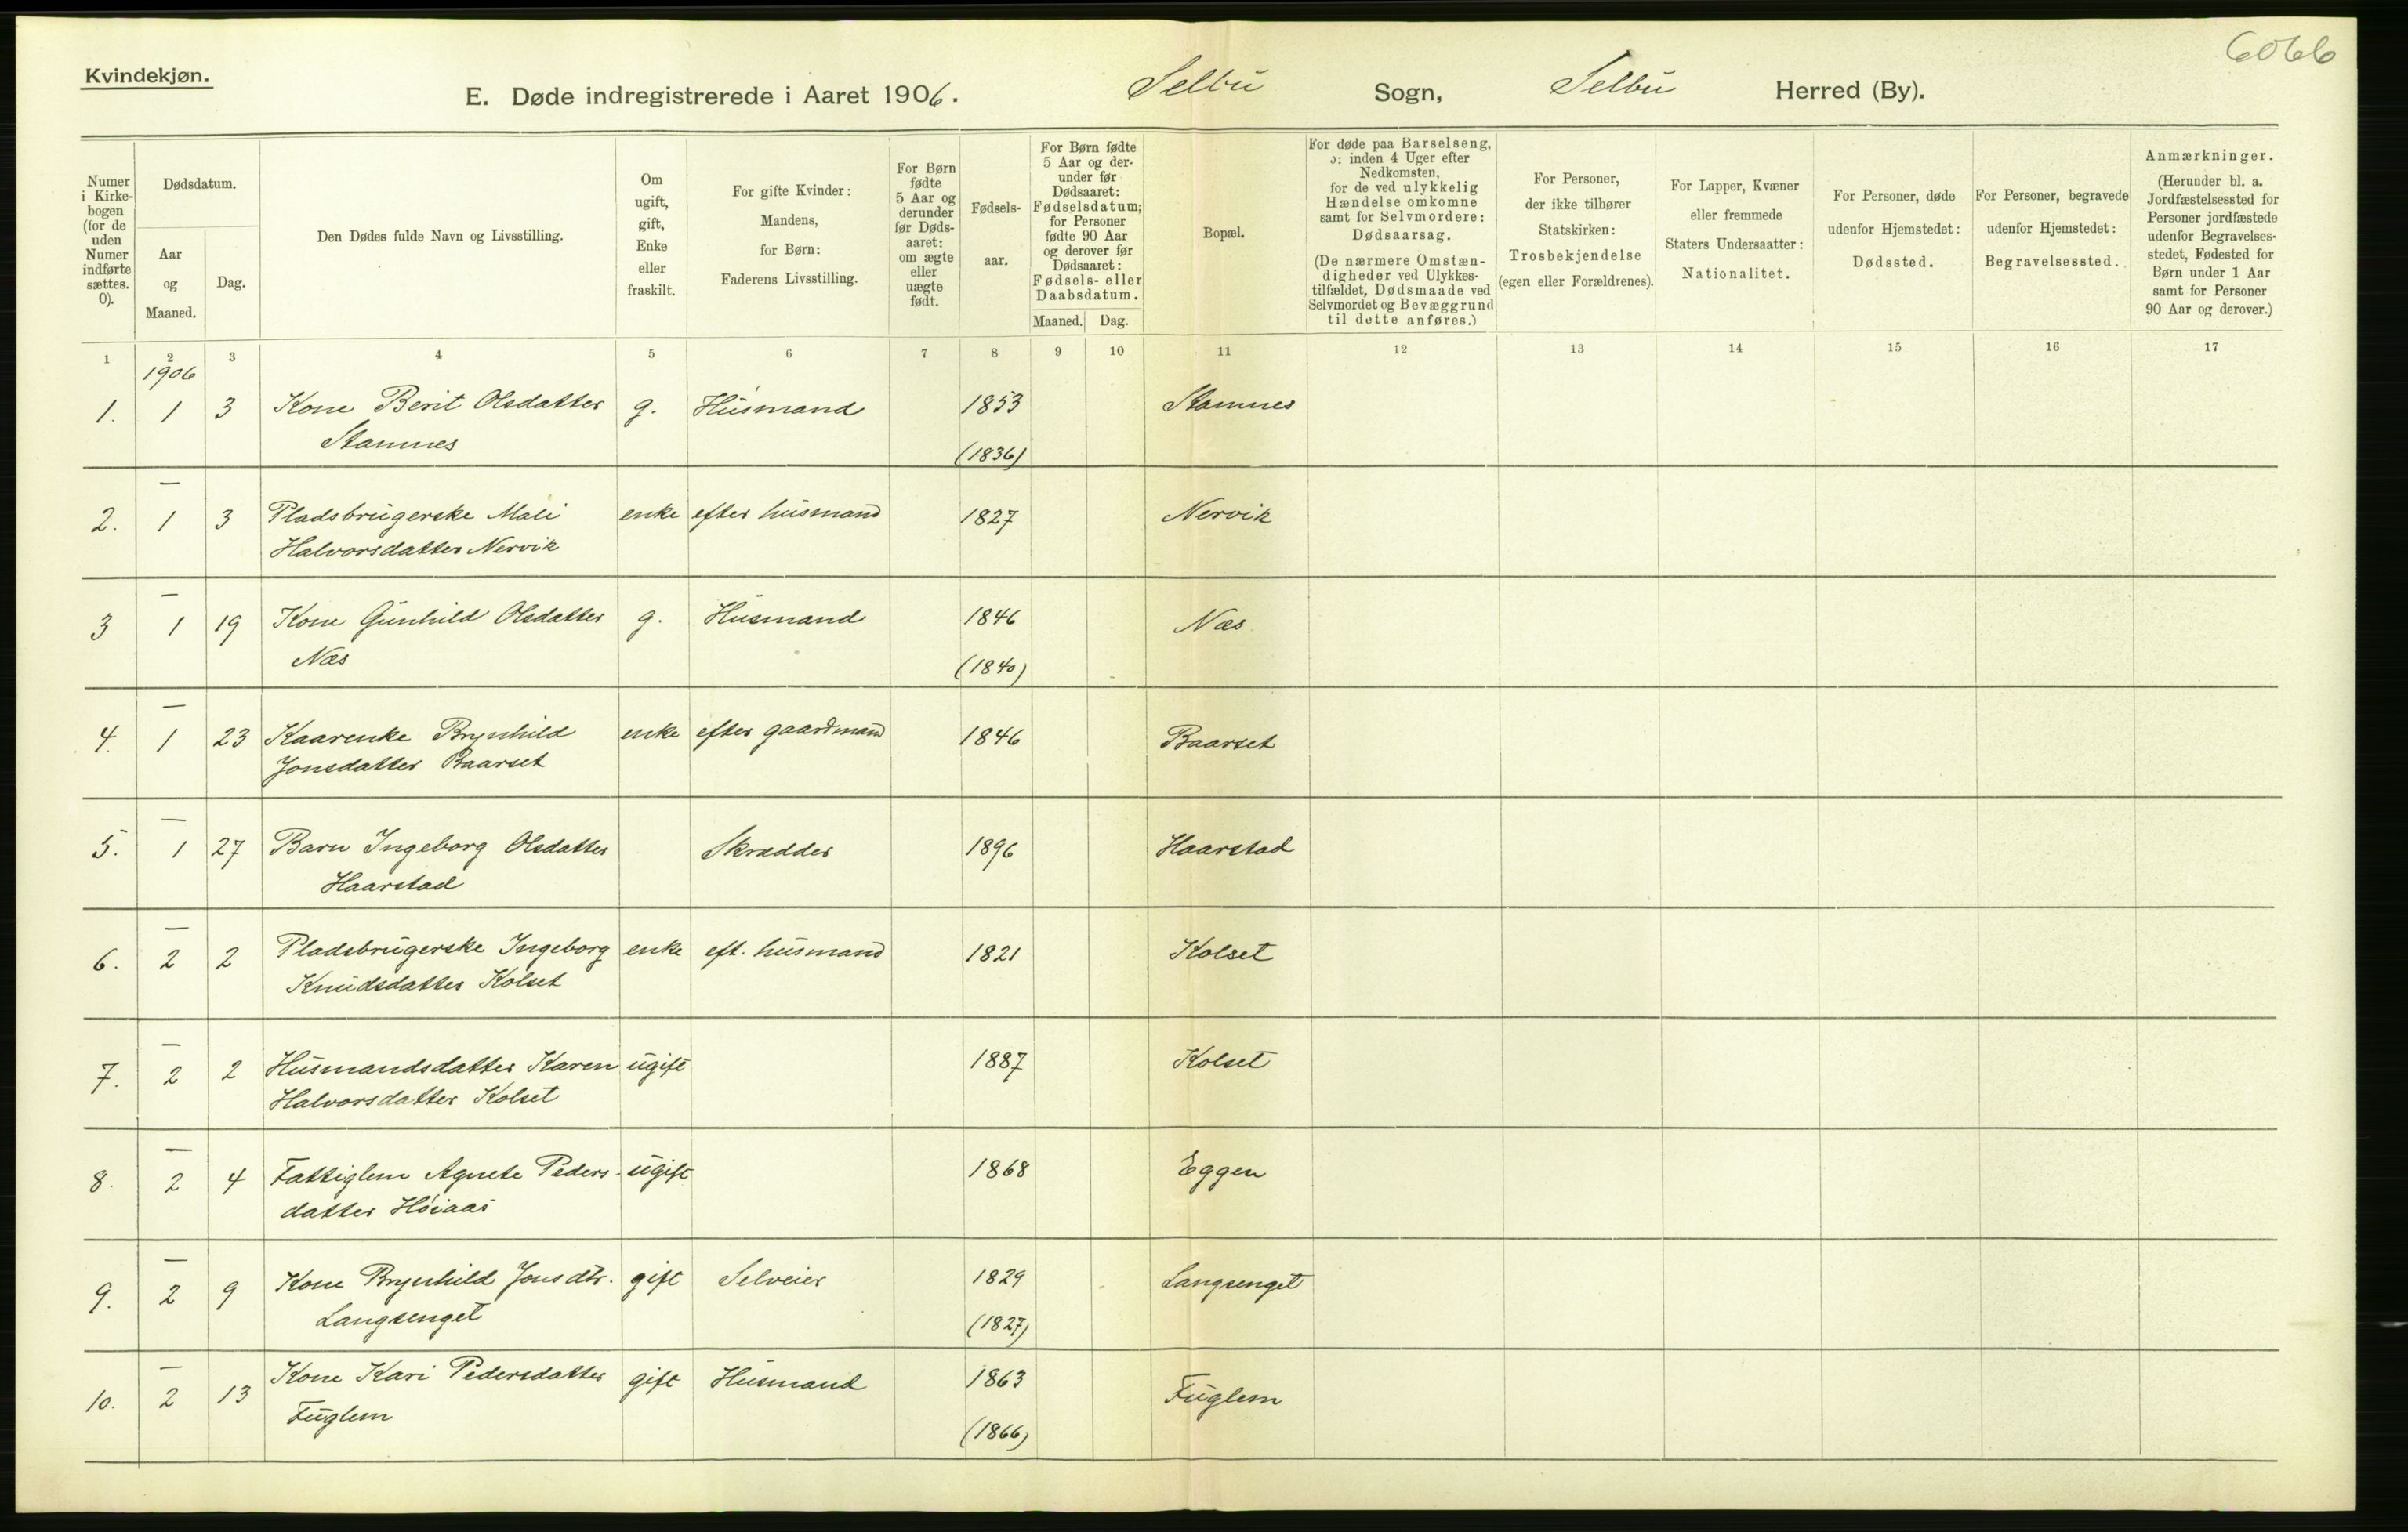 6066
Kvindekjøn.
E. Døde indregistrerede i Aaret 1906. Selbu Sogn, Selbu Herred (By).
Numer i Kirkebogen (for de uden Numer indførte sættes. 0).
Dødsdatum.
Aar og Maaned.
Dag.
Den Dødes fulde Navn og Livsstilling.
Om ugift, gift, Enke eller fraskilt.
For gifte Kvinder: Mandens, for Børn: Faderens Livsstilling.
For Børn fødte 5 Aar og derunder før Dødsaaret: om ægte eller uægte født.
Fødselsaar.
For Børn fødte 5 Aar og derunder før Dødsaaret: Fødselsdatum; for Personer fødte 90 Aar og derover før Dødsaaret: Fødsels- eller Daabsdatum.
Maaned. Dag.
Bopæl.
For døde paa Barselseng, ɔ: inden 4 Uger efter Nedkomsten, for de ved ulykkelig Hændelse omkomne samt for Selvmordere: Dødsaarsag.
(De nærmere Omstændigheder ved Ulykkestilfældet, Dødsmaade ved Selvmordet og Bevæggrund til dette anføres.)
For Personer, der ikke tilhører Statskirken: Trosbekjendelse (egen eller Forældrenes).
For Lapper, Kvæner eller fremmede Staters Undersaatter: Nationalitet.
For Personer, døde udenfor Hjemstedet: Dødssted.
For Personer, begravede udenfor Hjemstedet: Begravelsessted.
Anmærkninger.
(Herunder bl. a. Jordfæstelsessted for Personer jordfæstede udenfor Begravelsesstedet, Fødested for Børn under 1 Aar samt for Personer 90 Aar og derover.)
1 2 3 4 5 6 7 8 9 10 11 12 13 14 15 16 17
1906
1. 1 3 Kone Berit Olsdatter g. Husmand 1853 Stamnes
Stamnes (1836)
—
2. 1 3 Pladsbrugerske Mali enke efter husmand 1827 Nervik
Halvorsdatter Nervik
—
3 1 19 Kone Gunhild Olsdatter g. Husmand 1846 Næs
Næs (1840)
—
4. 1 23 Kaarenke Brynhild enke efter gaardmand 1846 Baarset
Jonsdatter Baarset
—
5. 1 27 Barn Ingeborg Olsdatter Skrædder 1896 Haarstad
Haarstad
—
6. 2 2 Pladsbrugerske Ingeborg enke eft. husmand 1821 Kolset
Knudsdatter Kolset
—
7. 2 2 Husmandsdatter Karen ugift 1887 Kolset
Halvorsdatter Kolset
—
8. 2 4 Fattiglem Agnete Peders- ugift 1868 Eggen
datter Höiaas
—
9. 2 9 Kone Brynhild Jonsdtr. gift Selveier 1829 Langsenget
Langsenget (1827)
—
10. 2 13 Kone Kari Pedersdatter gift Husmand 1863 Fuglem
Fuglem (1866)